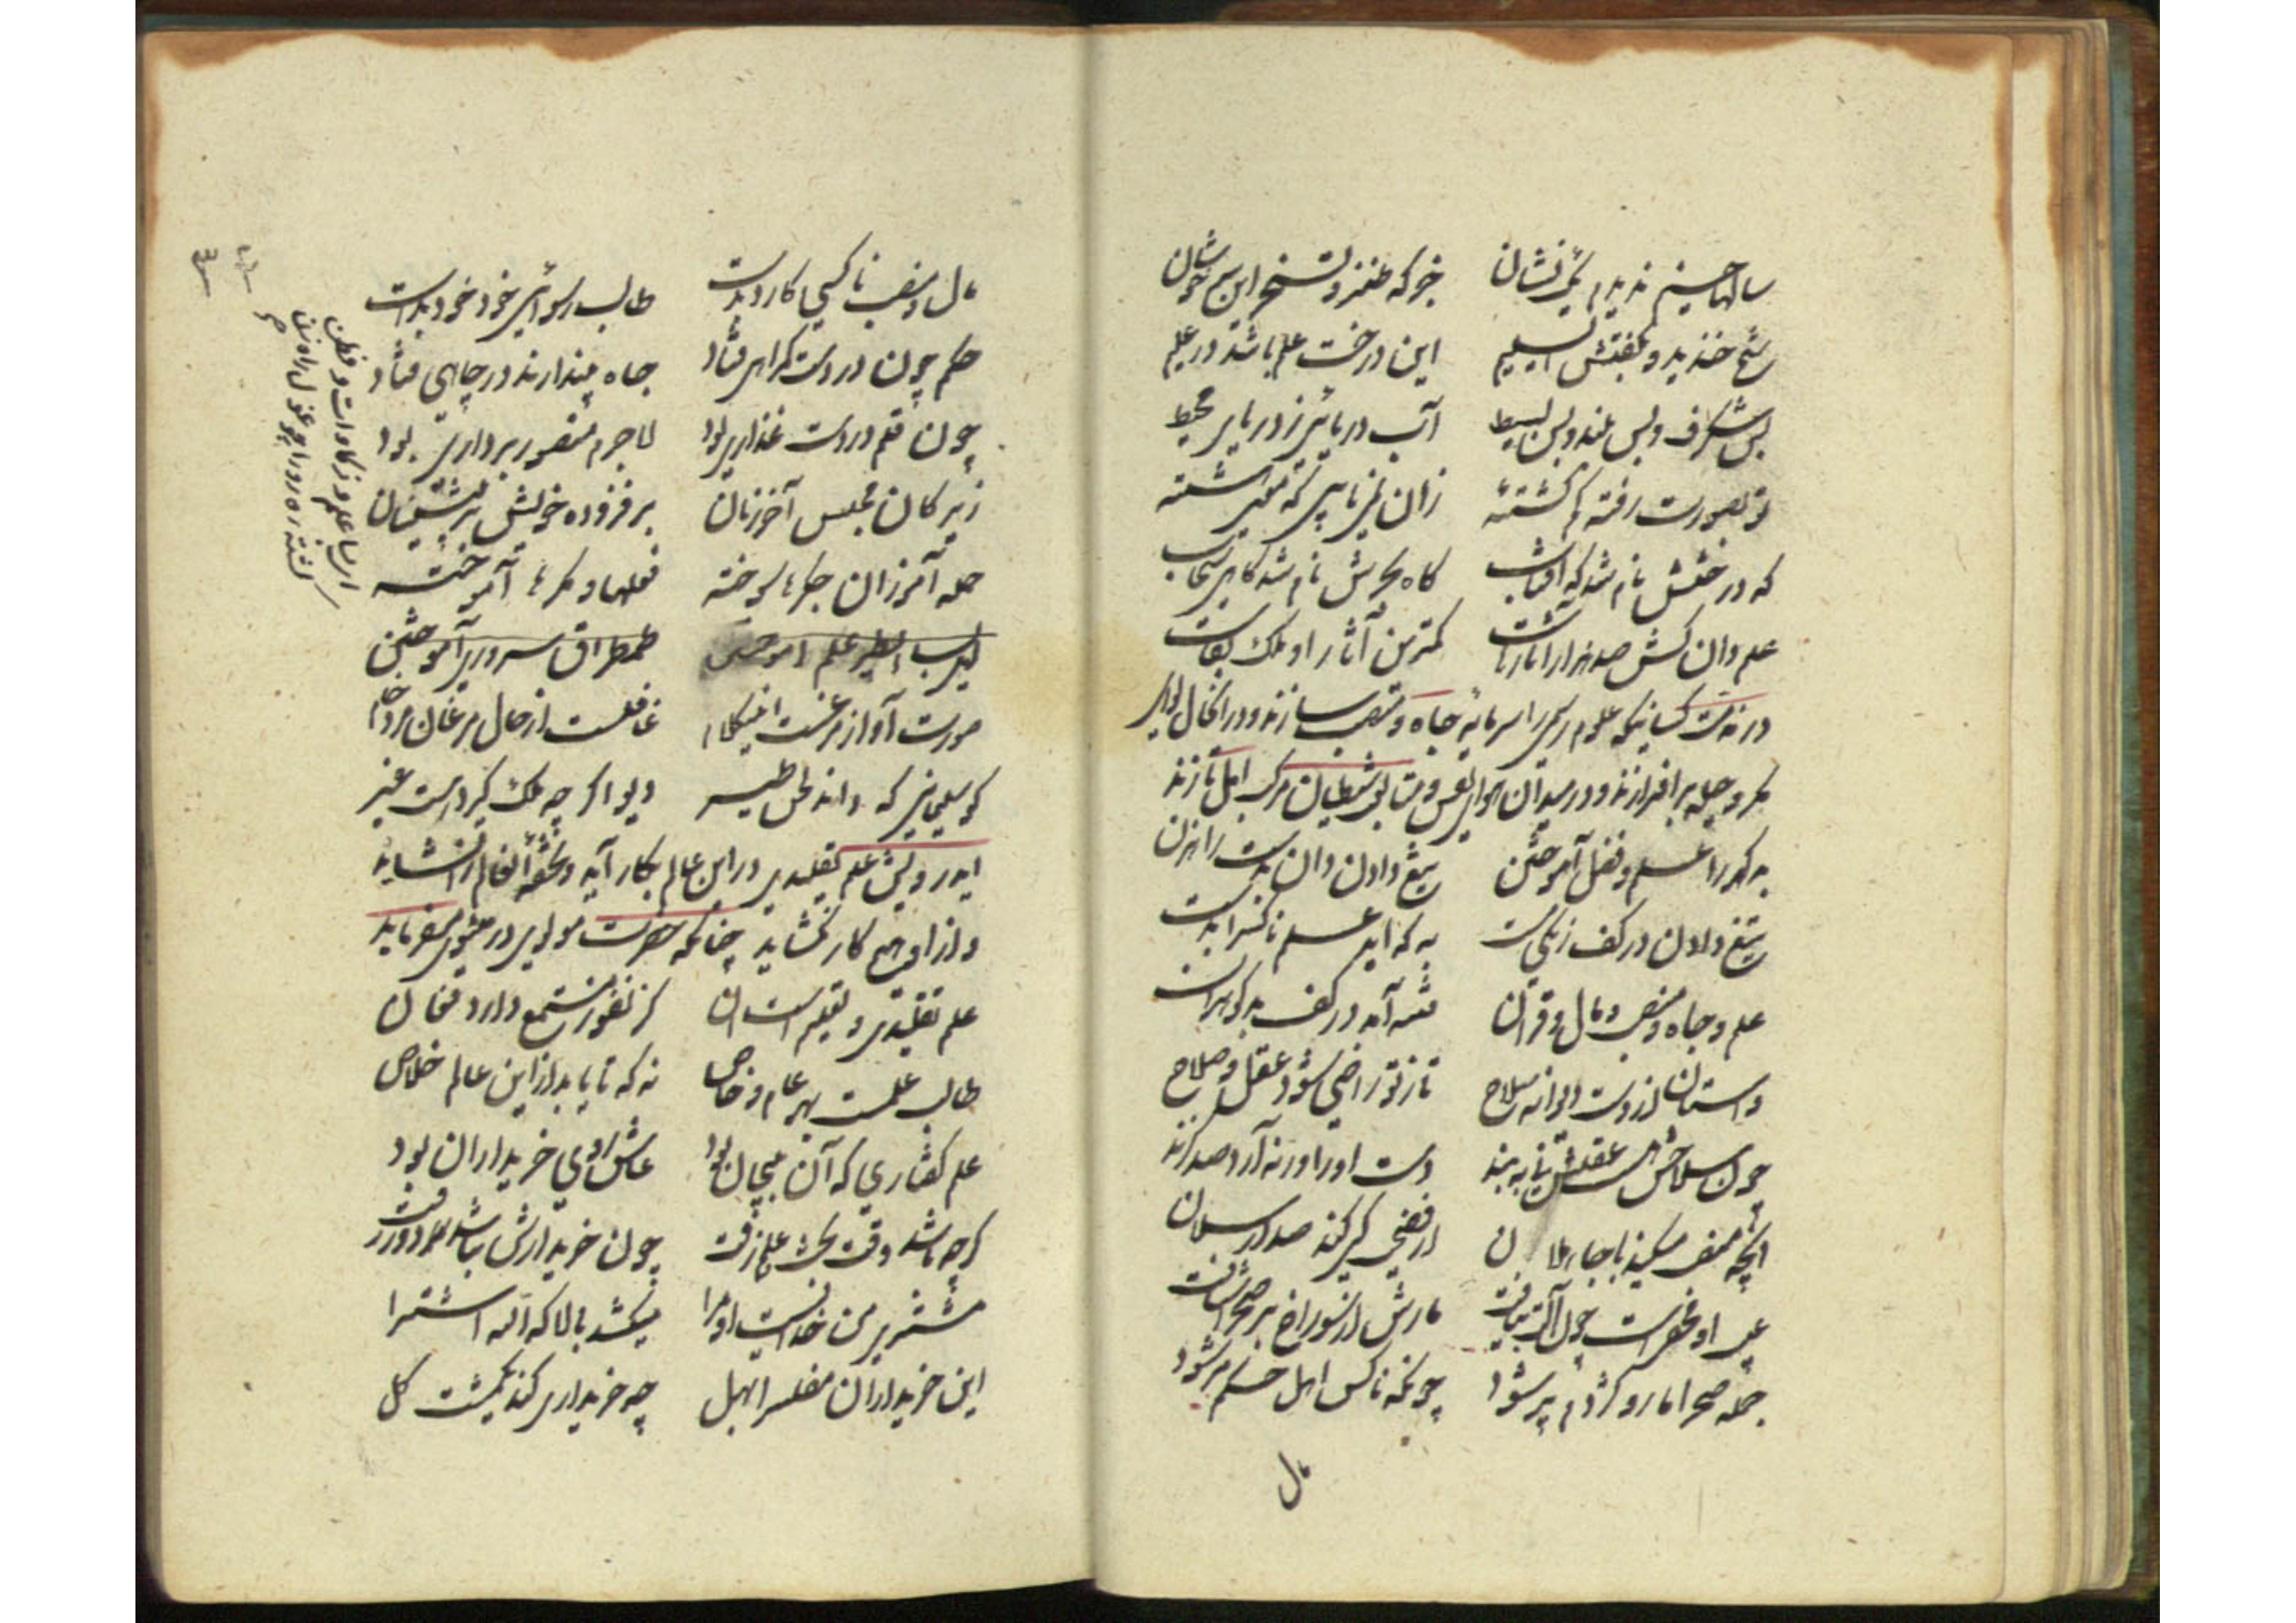 سالها جستم ندیدم یک نشان جز که طنز و تسخر این سرخوشان
شیخ خندید و بگفتش ای سلیم این درخت علم باشد در علیم
بس شگرف و بس بلند و بس بسیط آب دریائی ز دریای محیط
تو بصورت رفته گم گشته زان نمی یابی که معنی هشته
که درختش نام شد که آفتاب گاه بحرش نام شد گاهی سحاب
علم دان کش صد هزار آثارهاست کمترین آثار او ملک بقاست
در مذمت کسانیکه علوم رسمی را سرمایه جاه و منصب سازند و در آنحال لوای
مکر و حیله برافرازند و در میدان هوای نفس و متابعت شیطان مرکب امل تازند
بدگهر را علم و فضل آموختن تیغ دادن دان بدست راهزن
تیغ دادن در کف زنگی مست به که آید علم ناکس را بدست
علم و جاه و منصب و مال و قران فتنه آمد در کف بدگوهران
واستان از دست دیوانه سلاح تا ز تو راضی شود عقل و صلاح
چون سلاحش هست عقلش نی ببند دست او را ورنه آرد صد گزند
آنچه منصب میکند با جاهلان از فضیحت کی کند صد ارسلان
عیب او مخفی است چون آلت بیافت مارش از سوراخ بر صحرا شتافت
جمله صحرا مار و کژدم پر شود چونکه ناکس اهل حکم مر شود
مال
مال و منصب ناکسی کآرد بدست طالب رسوائی خود خود بدست
حکم چون در دست گمراهی فتاد جاه پندارند در چاهی فتاد
چون قلم در دست غداری بود لاجرم منصور بر داری بود
زیرکان مجلس آخر زمان بر فزوده خویش بر پیشینیان
حیله آموزان جگرها سوخته فعلها و مکرها آموخته
لیس الطیر علم آموختن طمطراق سروری آموختن
صورت آواز مرغست این کلام غافلست از حال مرغان مرد خام
کو سلیمانی که داند لحن طیر دیو اگر چه ملک گیرد هست غیر
ای درویش علم تقلیدی در این عالم بکار آید و تحفه آنعالم را نشاید
و از او هیچ کار نگشاید چنانکه حضرت مولوی در مثنوی میفرماید
علم تقلیدی و تعلیم است آن کز نفور مستمع دارد فغان
طالب علمست بهر عام و خاص نه که تا یابد از این عالم خلاص
علم گفتاری که آن بیجان بود عاشق روی خریداران بود
گرچه باشد وقت بحث علم زفت چون خریدارش نباشد مرد و رفت
مشتری من خداست او مرا میکشد بالا که الله اشترا
این خریداران مفلس را بهل چه خریداری کند یکمشت گل